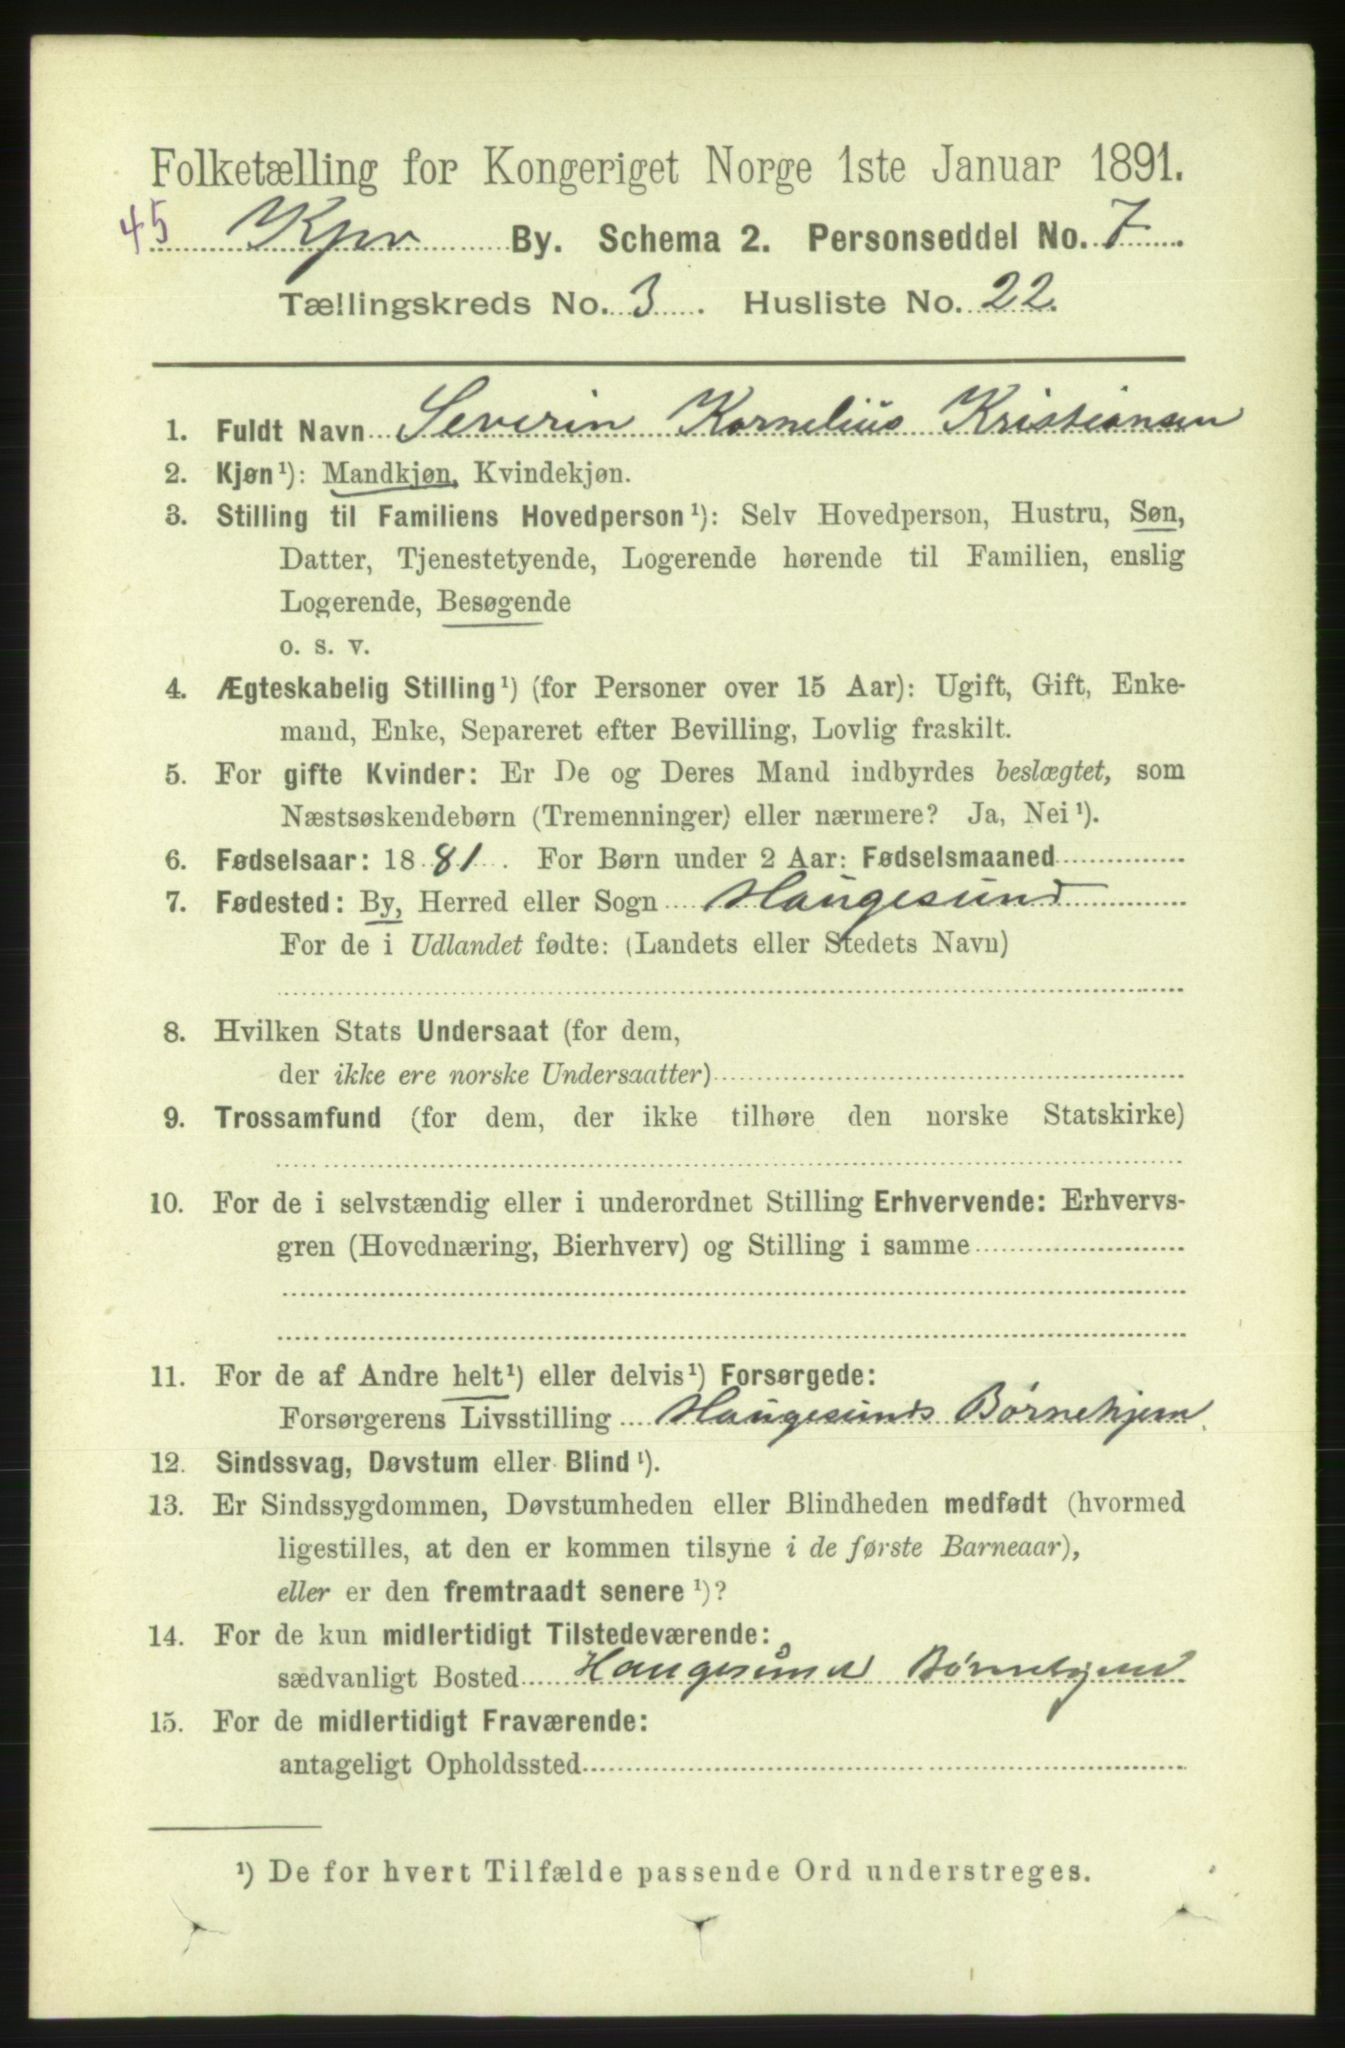 Folketælling for Kongeriget Norge 1ste Januar 1891.
45 Kprv By. Schema 2. Personseddel No. 7
Tællingskreds No. 3. Husliste No. 22.
1. Fuldt Navn Severin Kornelius Kristiansen
2. Kjøn¹): Mandkjøn, Kvindekjøn.
3. Stilling til Familiens Hovedperson¹): Selv Hovedperson, Hustru, Søn,
Datter, Tjenestetyende, Logerende hørende til Familien, enslig
Logerende, Besøgende
o. s. v.
4. Ægteskabelig Stilling¹) (for Personer over 15 Aar): Ugift, Gift, Enke-
mand, Enke, Separeret efter Bevilling, Lovlig fraskilt.
5. For gifte Kvinder: Er De og Deres Mand indbyrdes beslægtet, som
Næstsøskendebørn (Tremenninger) eller nærmere? Ja, Nei¹).
6. Fødselsaar: 1881. For Børn under 2 Aar: Fødselsmaaned
7. Fødested: By, Herred eller Sogn Haugesund
For de i Udlandet fødte: (Landets eller Stedets Navn)
8. Hvilken Stats Undersaat (for dem,
der ikke ere norske Undersaatter)
9. Trossamfund (for dem, der ikke tilhøre den norske Statskirke)
10. For de i selvstændig eller i underordnet Stilling Erhvervende: Erhvervs-
gren (Hovednæring, Bierhverv) og Stilling i samme
11. For de af Andre helt¹) eller delvis¹) Forsørgede:
Forsørgerens Livsstilling Haugesunds Børnehjem.
12. Sindssvag, Døvstum eller Blind¹).
13. Er Sindssygdommen, Døvstumheden eller Blindheden medfødt (hvormed
ligestilles, at den er kommen tilsyne i de første Barneaar),
eller er den fremtraadt senere¹)?
14. For de kun midlertidigt Tilstedeværende:
sædvanligt Bosted Haugesund Børnehjem
15. For de midlertidigt Fraværende:
antageligt Opholdssted
¹) De for hvert Tilfælde passende Ord understreges.